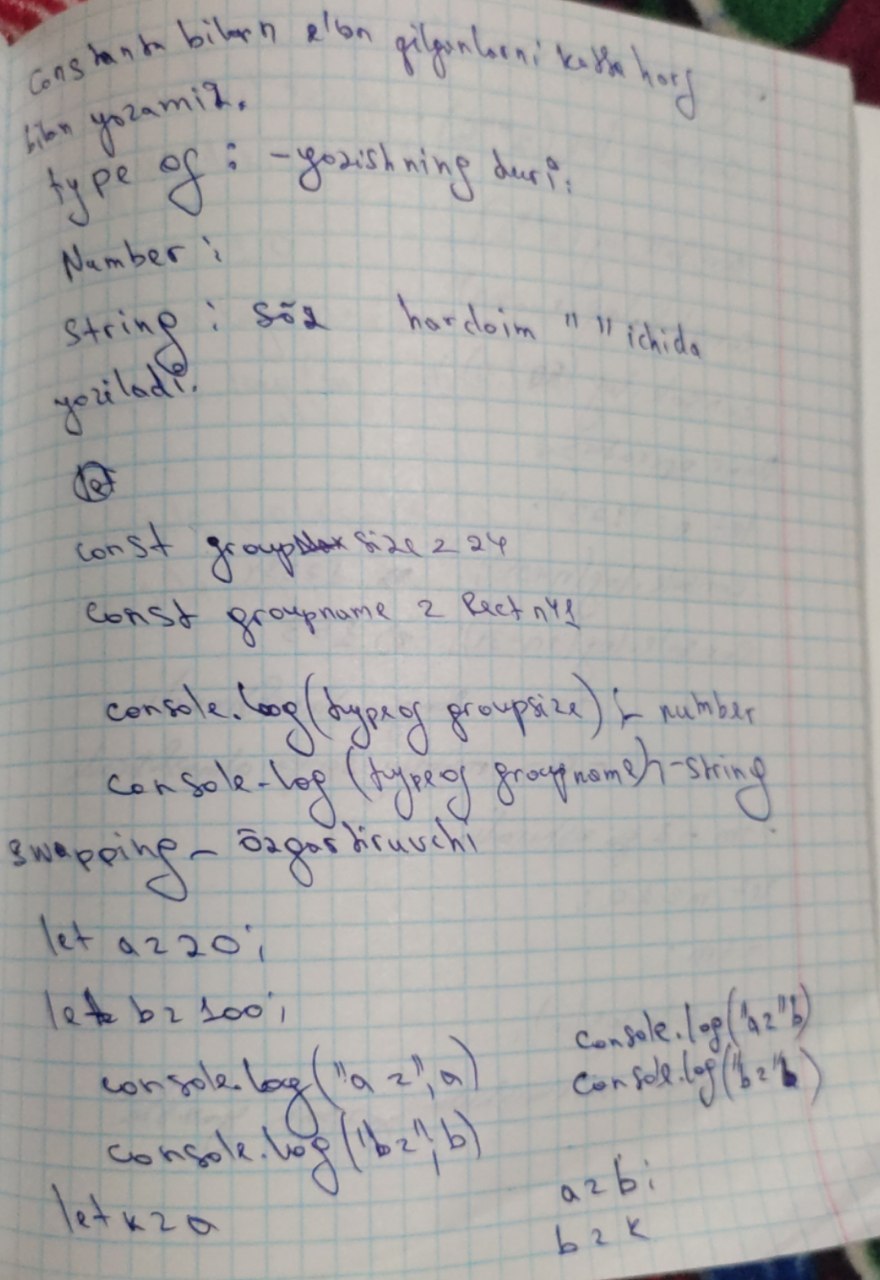 Constanta bilan e'lon qilganlarni katta harf
bilan yozamiz.
type of : - yozishning turi.
Number :
String : sõz hardoim " " ichida
yoziladi.
let
const group size = 24
const groupname = React n41
console.log(typeof groupsize) - number
console.log (typeof groupname) - string
swapping - õzgartiruvchi
let a = 20;
let b = 100;
console.log("a =", a)
console.log("b =", b)
let k = a
console.log("a =" b)
console.log("b = "
a = b;
b = k